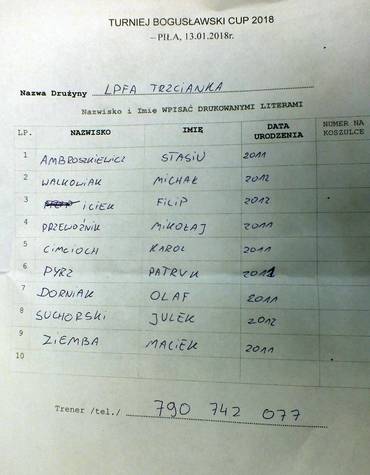 TURNIEJ BOGUSŁAWSKI CUP 2018
– PIŁA, 13.01.2018r.
Nazwa Drużyny LPFA TRZCIANKA
Nazwisko i Imię WPISAĆ DRUKOWANYMI LITERAMI
LP. NAZWISKO IMIĘ DATA URODZENIA NUMER NA KOSZULCE
1 AMBROSZKIEWICZ STASIU 2011
2 WALKOWIAK MICHAŁ 2012
3 ICIEK FILIP 2012
4 PRZEWOŹNIK MIKOŁAJ 2011
5 CIMCIOCH KAROL 2011
6 PYRZ PATRYK 2011
7 DORNIAK OLAF 2011
8 SUCHORSKI JULEK 2012
9 ZIEMBA MACIEK 2011
10
Trener /tel./ 790 742 077